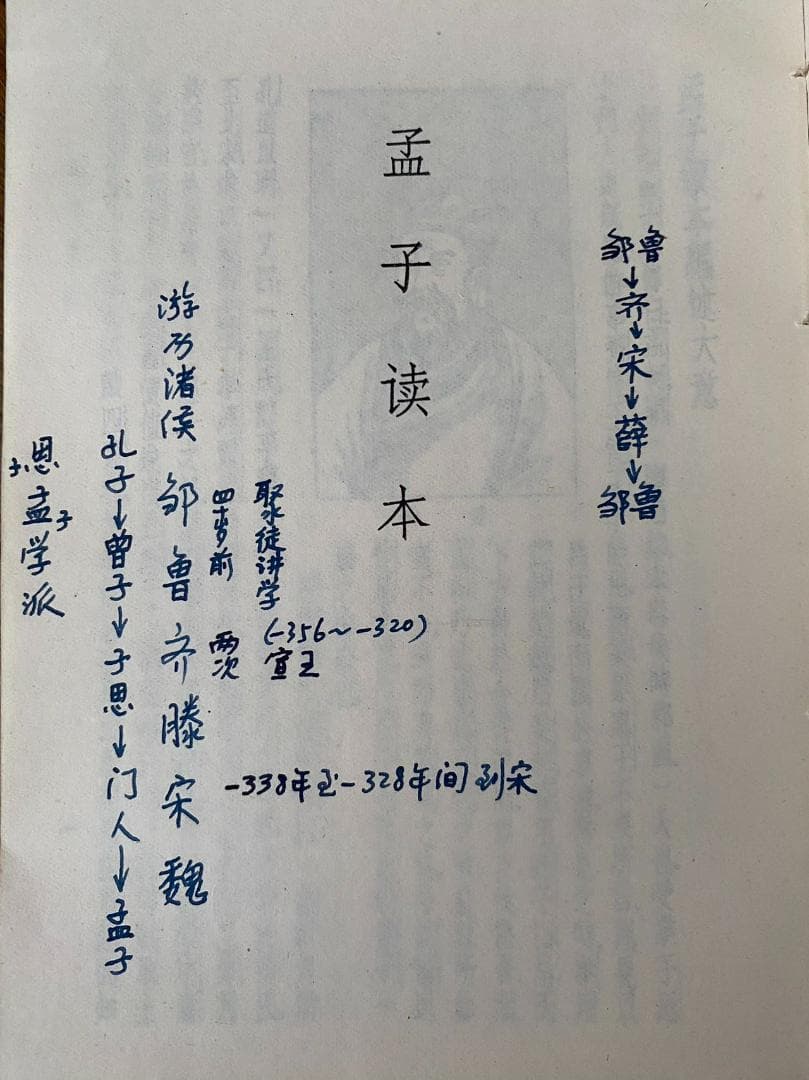 邹鲁→齐→宋→薛→邹鲁
孟子读本
聚徒讲学
四十岁前
(-356～-320)
宣王
两次
-338年至-328年间到宋
游历诸侯 邹鲁齐滕宋魏
孔子→曾子→子思→门人→孟子
子思孟子学派